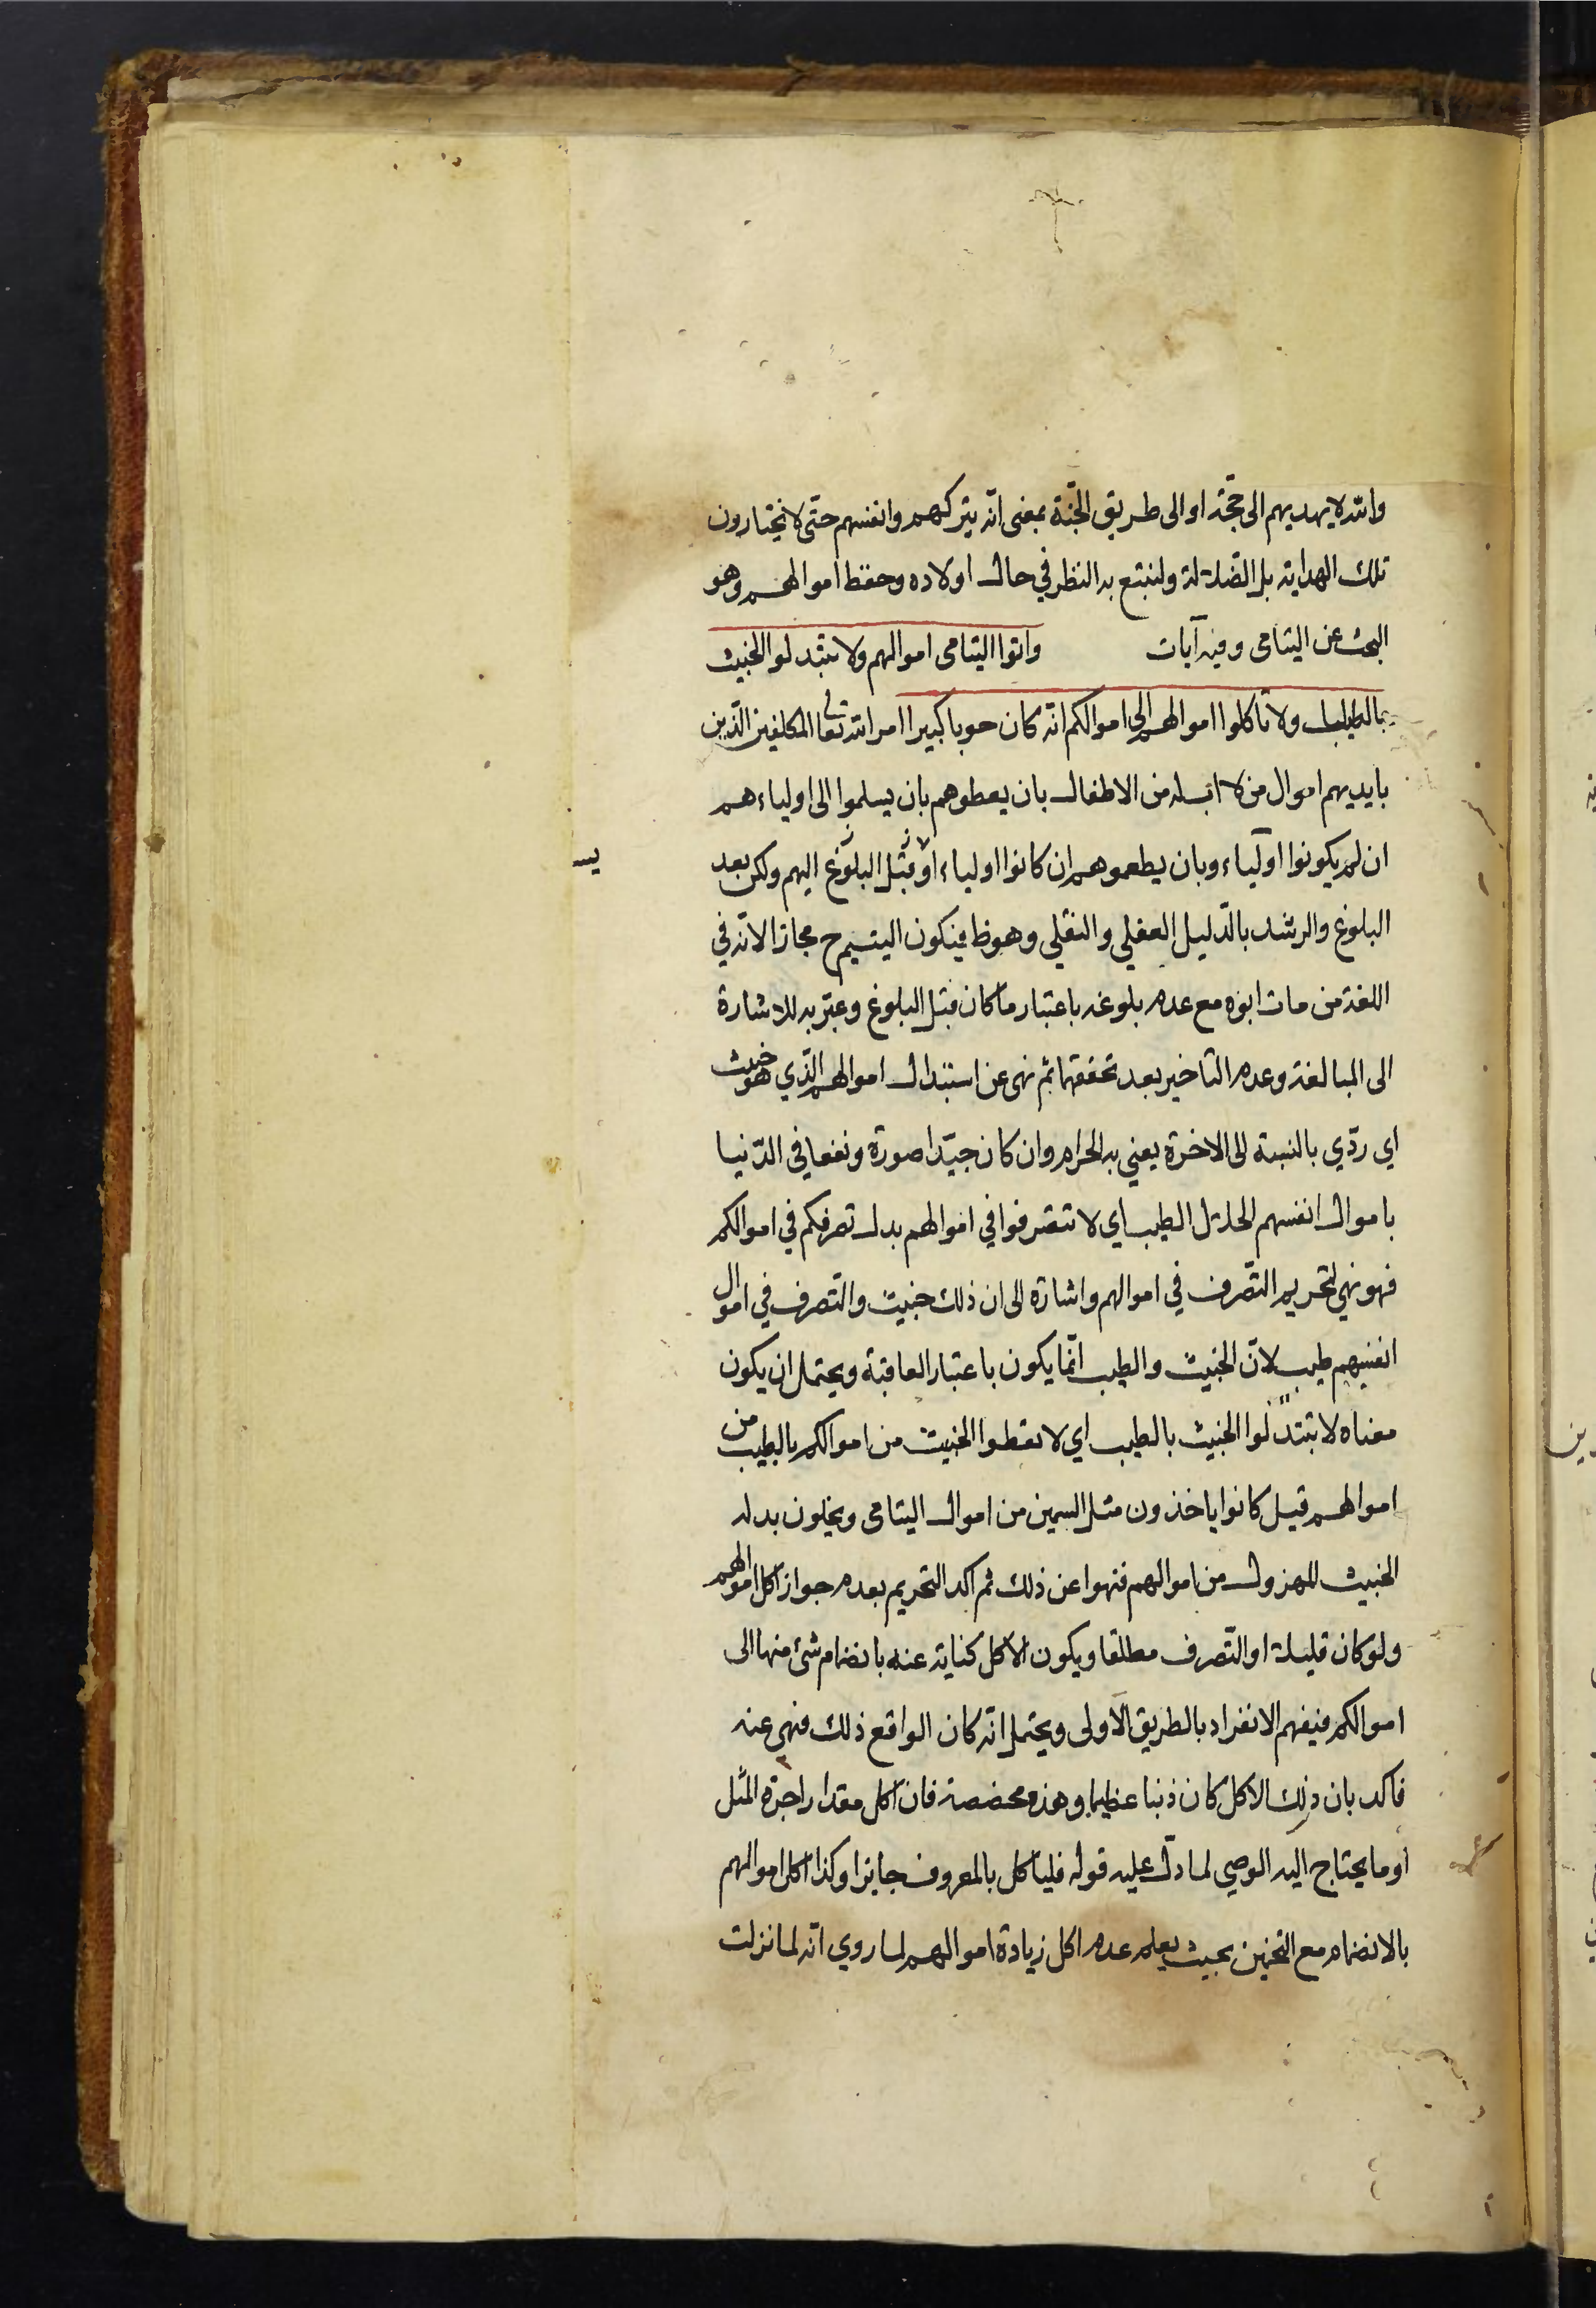 والله لا يهديهم الى حجّة او الى طريق الجنّة بمعنى انّه يتركهم وانفسهم حتّى لا يختارون
تلك الهداية بل الضلالة ولنتبع به النظر في حال اولاده وحفظ اموالهم وهو
البحث عن اليتامى وفيه آيات واتوا اليتامى اموالهم ولا تتبدلوا الخبيث
بالطيب ولا تاكلوا اموالهم الى اموالكم انّه كان حوبا كبيرا امر الله تعالى المكلفين الّذين
بايديهم اموال من لا اب له من الاطفال بان يعطوهم بان يسلموا الى اولياءهم
ان لم يكونوا اولياء وبان يطعموهم ان كانوا اولياء او قبل البلوغ اليهم ولكن بعد
البلوغ والرشد بالدّليل العقلي والنقلي وهو ظ فيكون اليتيم ح مجازا لانّه في
اللغة من مات ابوه مع عدم بلوغه باعتبار ما كان قبل البلوغ وعبّر به للاشارة
الى المبالغة وعدم التاخير بعد تحققها ثمّ نهى عن استبدال اموالهم الّذي هو خبيث
اي ردّي بالنسبة الى الاخرة يعني به الحرام وان كان جيّدا صورة ونفعا في الدّنيا
باموال انفسهم الحلال الطيب اي لا تتصرفوا في اموالهم بدل تصرفكم في اموالكم
فهو نهي لتحريم التّصرف في اموالهم واشارة الى ان ذلك خبيث والتّصرف في اموال
انفسهم طيب لانّ الخبيث والطيب انّما يكون باعتبار العاقبة ويحتمل ان يكون
معناه لا تتبدّلوا الخبيث بالطيب اي لا تعطوا الخبيث من اموالكم بالطيب من
اموالهم قيل كانوا ياخذون مثل السمين من اموال اليتامى ويخلون بدله
الخبيث المهزول من اموالهم فنهوا عن ذلك ثم اكد التحريم بعدم جواز اكل اموالهم
ولو كان قليلا او التّصرف مطلقا ويكون الاكل كناية عنه بانضمام شئ منها الى
اموالكم فيفهم الانفراد بالطريق الاولى ويحتمل انّه كان الواقع ذلك فنهى عنه
فاكد بان ذلك الاكل كان ذنبا عظيما وهذه مخصصة فان اكل مقدار اجرة المثل
او ما يحتاج اليه الوصي لما دلّ عليه قوله فلياكل بالمعروف جايز وكذا اكل اموالهم
بالانضمام مع التخمين بحيث يعلم عدم اكل زيادة اموالهم لما روي انّه لما نزلت